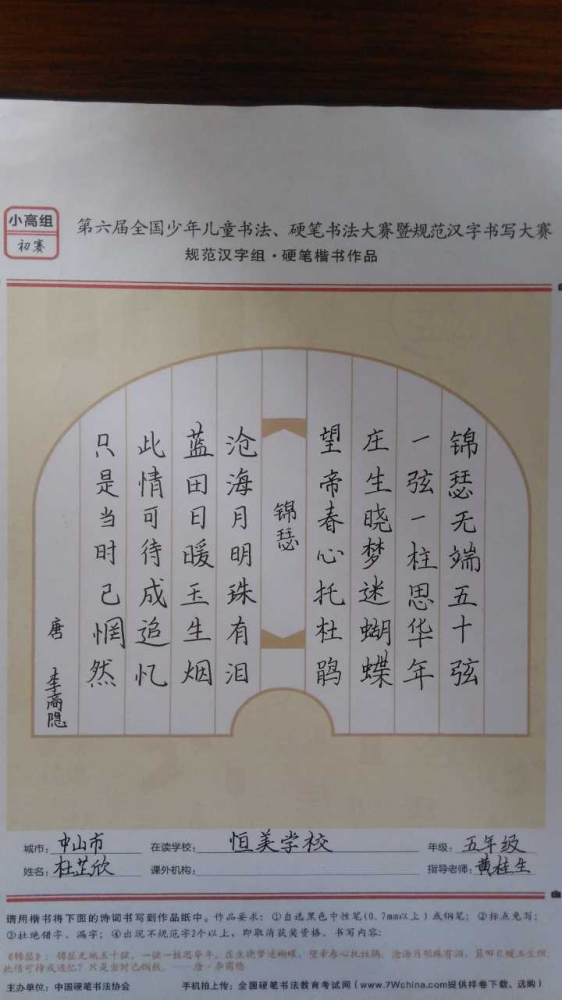 小高组
初赛
第六届全国少年儿童书法、硬笔书法大赛暨规范汉字书写大赛
规范汉字组·硬笔楷书作品
锦瑟无端五十弦
一弦一柱思华年
庄生晓梦迷蝴蝶
望帝春心托杜鹃
锦瑟
沧海月明珠有泪
蓝田日暖玉生烟
此情可待成追忆
只是当时已惘然
唐 李商隐
城市：中山市 在读学校：恒美学校 年级：五年级
姓名：杜芷欣 课外机构： 指导老师：黄桂生
请用楷书将下面的诗词书写到作品纸中。作品要求：①自选黑色中性笔(0.7mm以上)或钢笔；②标点免写；
③杜绝错字、漏字；④出现不规范字2个以上，即取消获奖资格。书写内容：
《锦瑟》：锦瑟无端五十弦，一弦一柱思华年。庄生晓梦迷蝴蝶，望帝春心托杜鹃。沧海月明珠有泪，蓝田日暖玉生烟。
此情可待成追忆？只是当时已惘然。——唐·李商隐
主办单位：中国硬笔书法协会 手机拍上传：全国硬笔书法教育考试网（www.7Wchina.com提供样卷下载、选购）